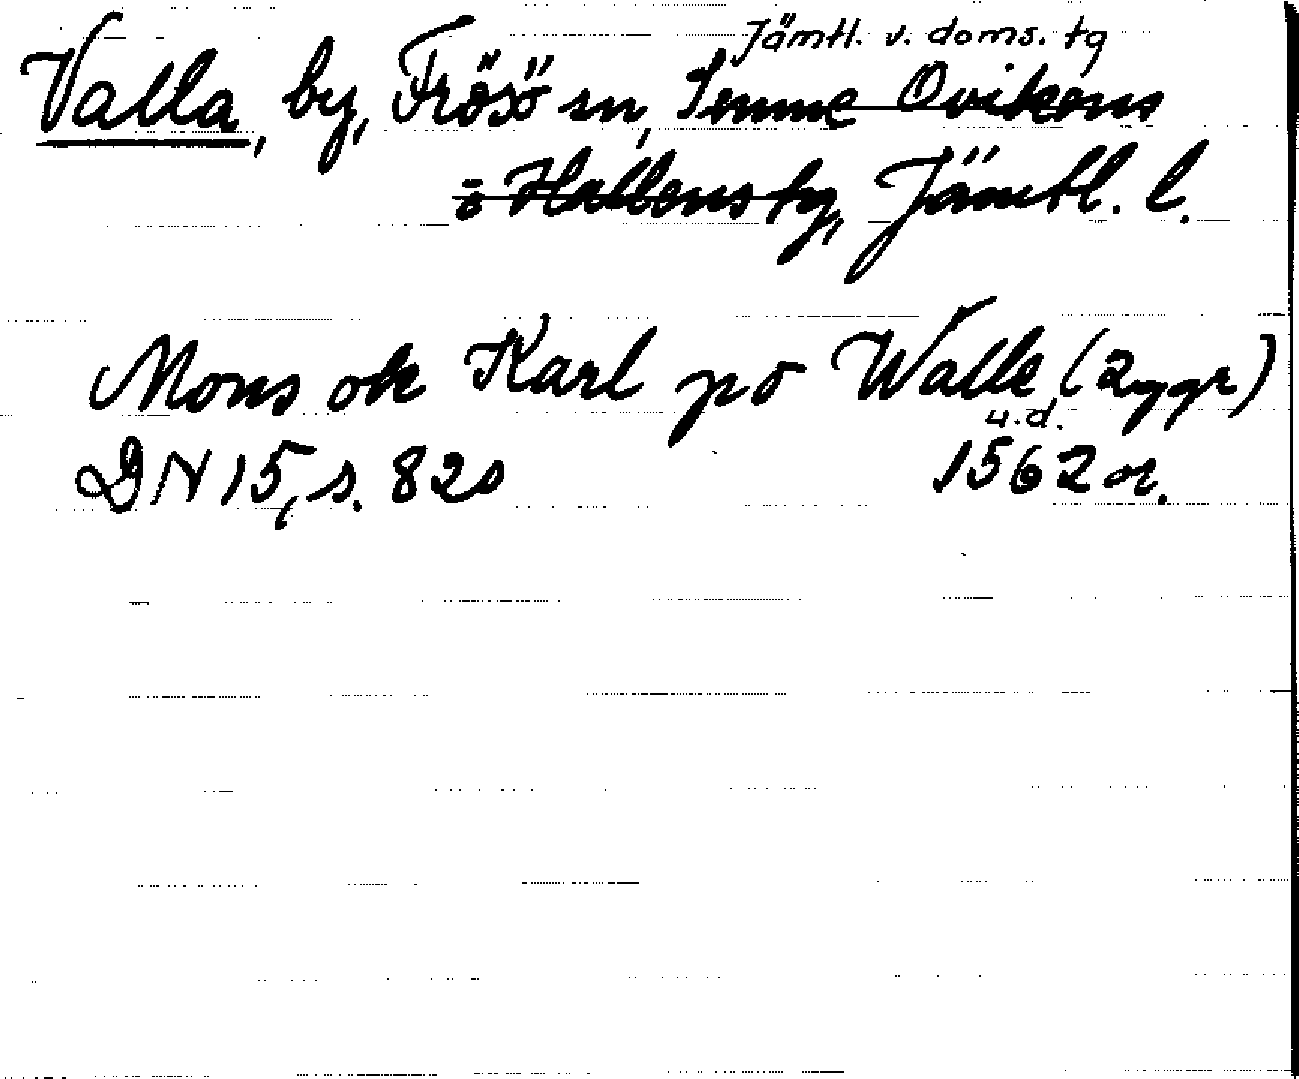 Jämtl. v. doms. tg
Valla, by, Frösö sn, Sunne Ovikens
o Hallens tg, Jämtl. l.
Mons ok Karl po Walle (2 ggr)
u.d.
DN 15, s. 82 1562 or.